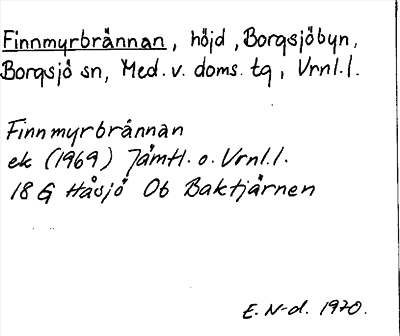 Finnmyrbrännan, höjd, Borgsjöbyn,
Borgsjö sn, Med. v. doms. tg, Vrnl.l.
Finnmyrbrännan
ek (1969) Jämtl. o. Vrnl.l.
18 G Håsjö Ob Baktjärnen
E. N-d. 1970.